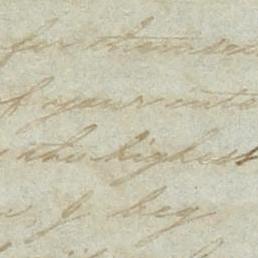 for themsel
of your inte
this highest
I beg